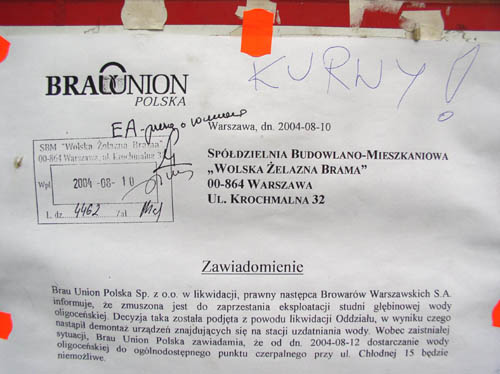 KURWY!
BRAU UNION
POLSKA
EA
Warszawa, dn. 2004-08-10
SBM "Wolska Żelazna Brama"
00-864 Warszawa, ul. Krochmalna 32
Wpł. 2004 -08- 10
L. dz. 4462 Zał.
SPÓŁDZIELNIA BUDOWLANO-MIESZKANIOWA
„WOLSKA ŻELAZNA BRAMA"
00-864 WARSZAWA
UL. KROCHMALNA 32
Zawiadomienie
Brau Union Polska Sp. z o.o. w likwidacji, prawny następca Browarów Warszawskich S.A.
informuje, że zmuszona jest do zaprzestania eksploatacji studni głębinowej wody
oligoceńskiej. Decyzja taka została podjęta z powodu likwidacji Oddziału, w wyniku czego
nastąpił demontaż urządzeń znajdujących się na stacji uzdatniania wody. Wobec zaistniałej
sytuacji, Brau Union Polska zawiadamia, że od dn. 2004-08-12 dostarczanie wody
oligoceńskiej do ogólnodostępnego punktu czerpalnego przy ul. Chłodnej 15 będzie
niemożliwe.